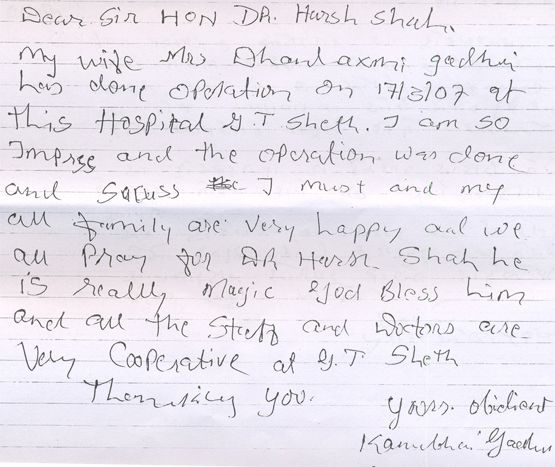 Dear Sir HON DR. Harsh Shah.
My wife Mrs Dhanlaxmi gadhvi
has done operation on 17/3/07 at
this Hospital G.T Sheth. I am so
Impress and the operation was done
and Sucuss I must and my
all family are very happy and we
all Pray for DR Harsh Shah he
is really Magic God Bless him
and all the Staff and Doctors are
Very Cooperative at G.T. Sheth
Thanking you.
Yours. obidient
Kanubhai Gadhvi